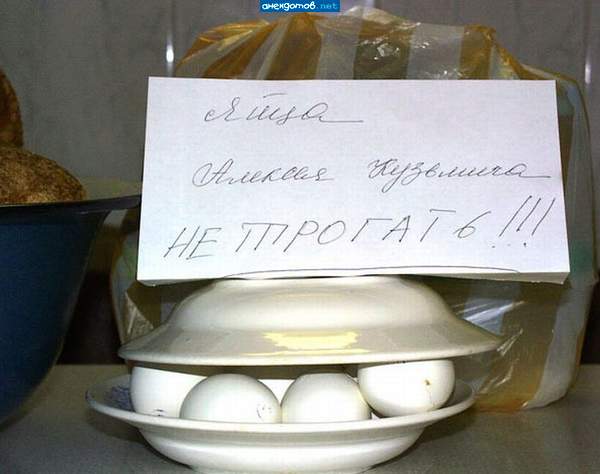 анекдотов.net
Яйца
Алексея Кузьмича
НЕ ТРОГАТЬ!!!